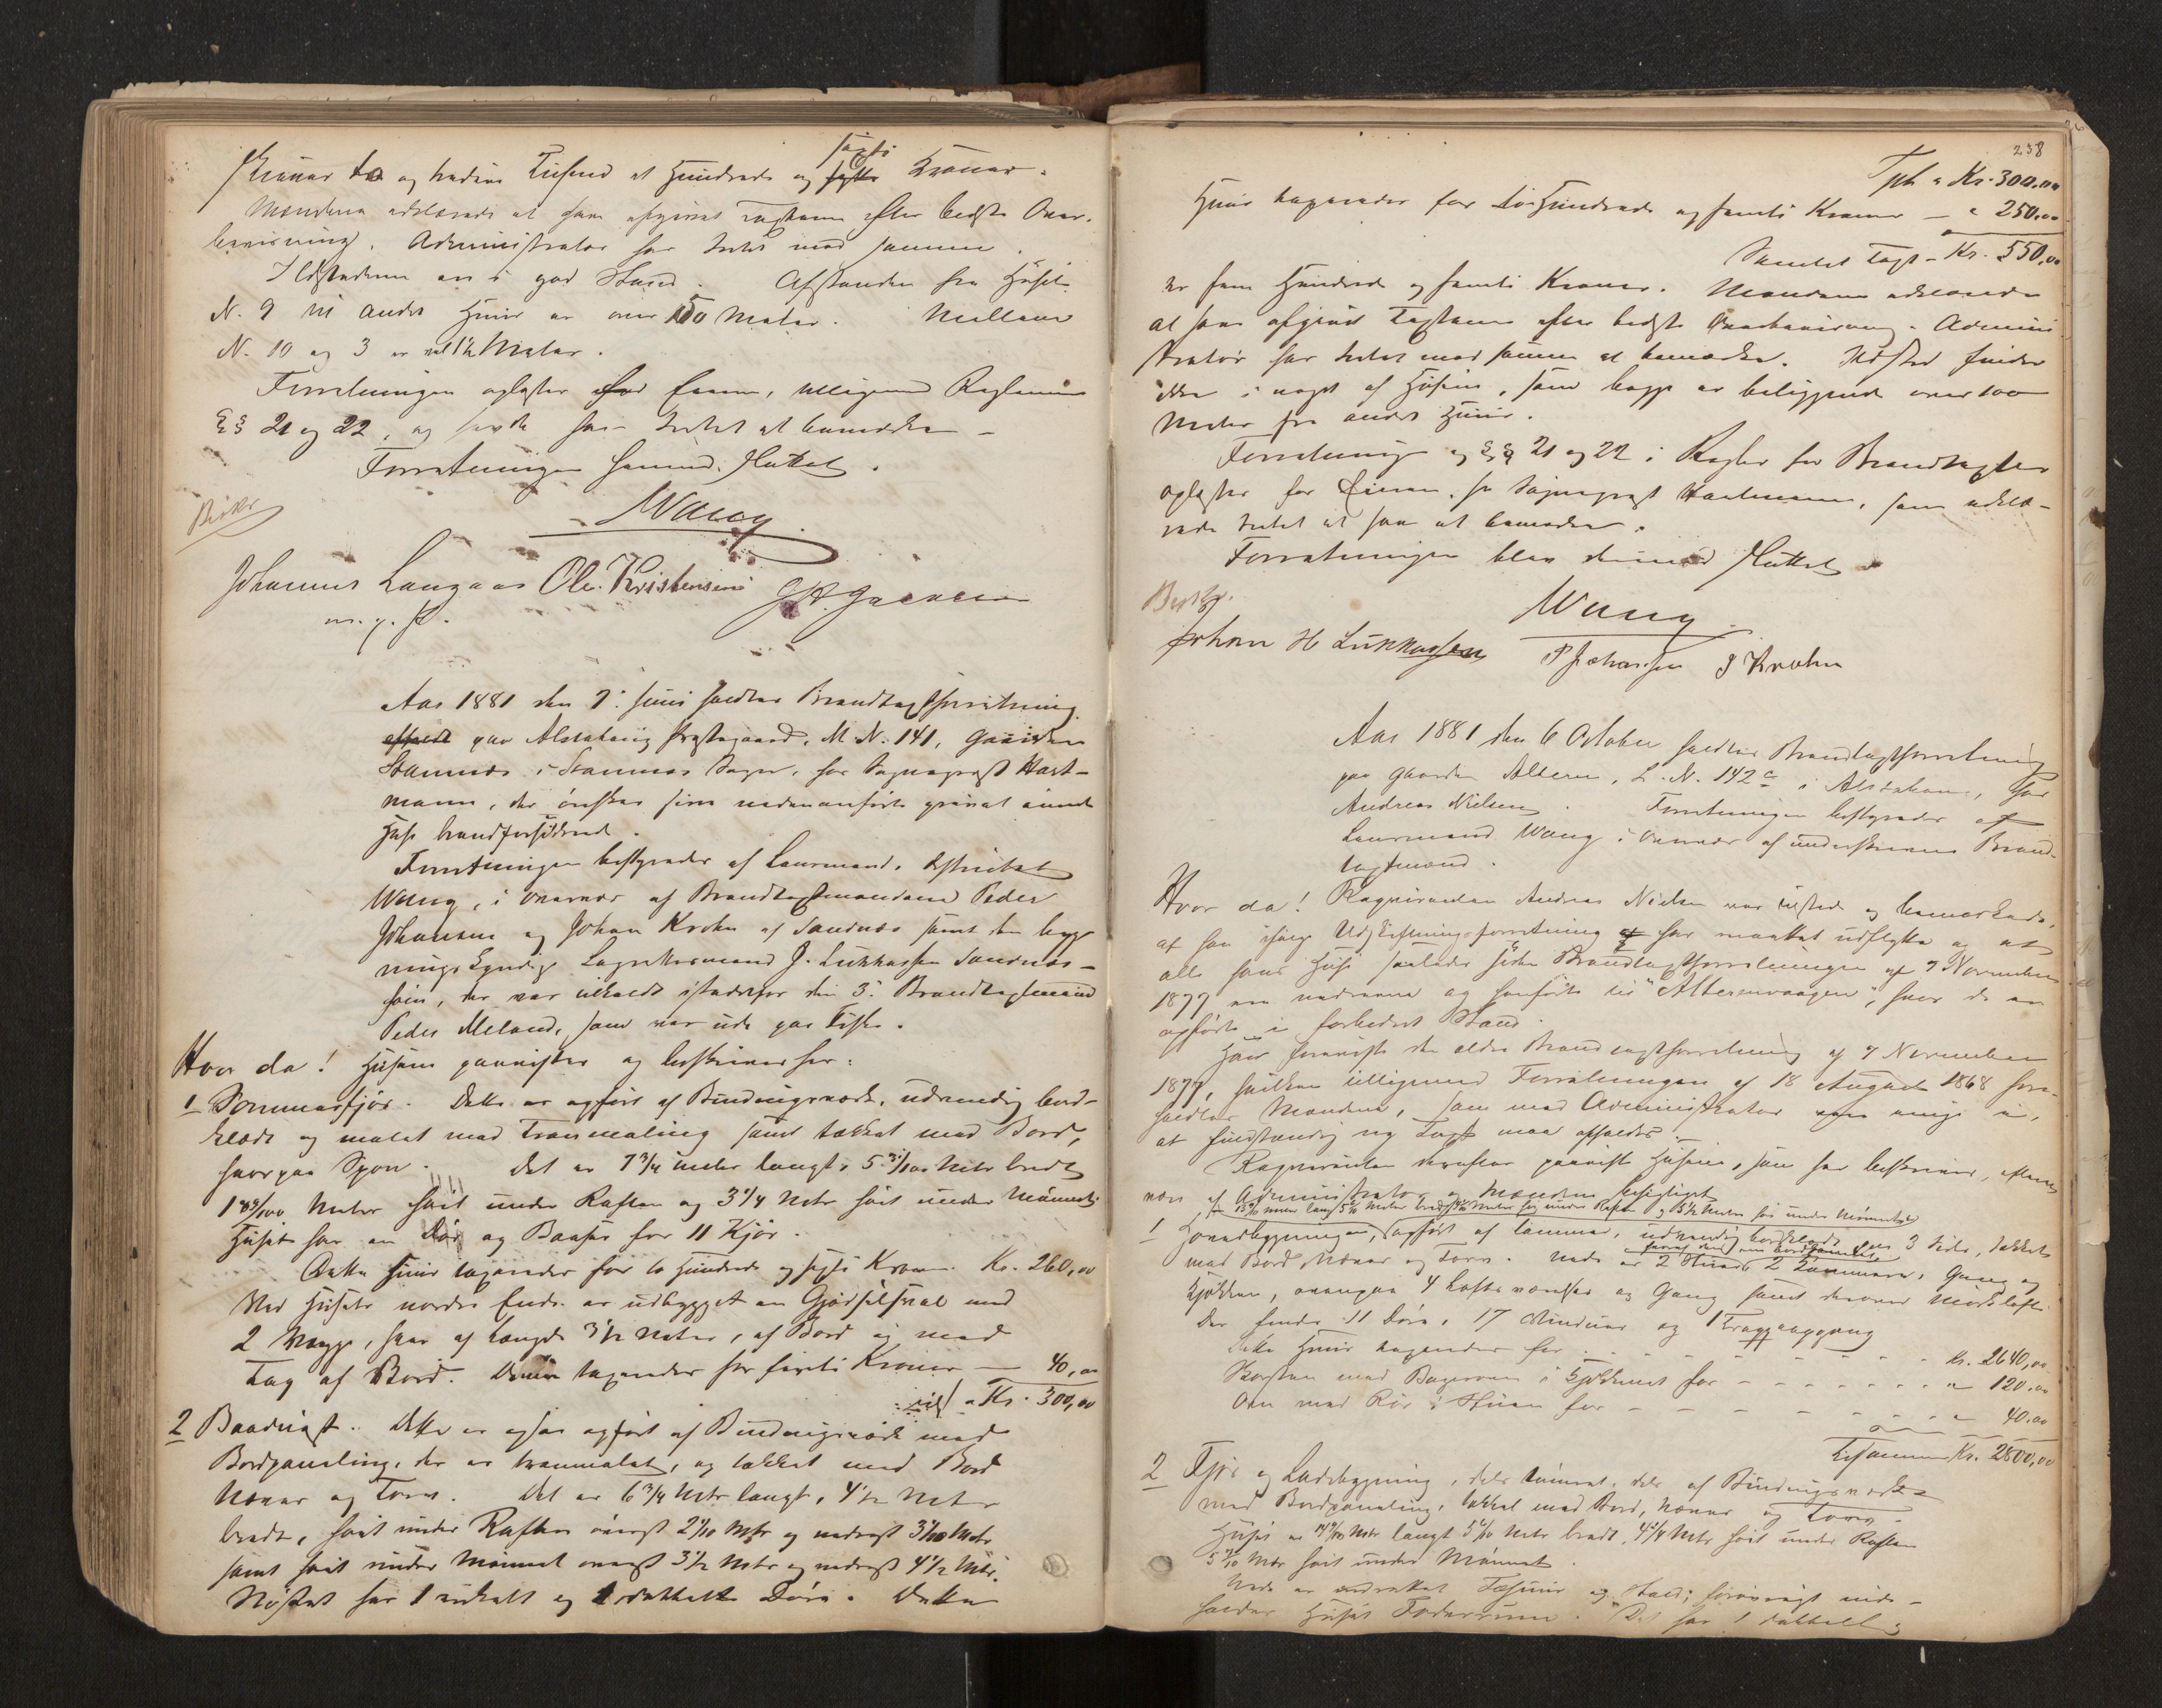 Kroner to og tredive Tusend et Hundrede og søgti Kroner.
Mændene erklærede at have afgivet Taxten efter bedste Over-
beviisning. Administrator har Intet mod samme
Ildstederne ere i god Stand. Afstanden fra Huset
N. 9 til andet Huus er over 100 Meter. Mellem
N. 10 og 3 er vel 1½ Meter.
Forretningen oplæstes for Eieren, tilligemed Reglernes
§§ 21 og 22, og havde han Intet at bemærke –
Forretningen hermed sluttet.
Wang
Johannes Langaas Ole Kristensen
m. p. P.
Aar 1881 den 7. Juni holdtes Brandtaxtforretning
paa Alstahaug Prestegaard, M. N. 141, Gaarden
Stamnes i Stamnes Sogn, for Sogneprest Hart-
mann, der ønsker sine nedenanførte privat eiende
Huse brandforsikrede.
Forretningen bestyredes af Lensmand
Wang, i Overvær af Brandtaxtmændene Peder
Johansen og Johan Krohn af Sandnes samt den byg-
ningskyndige Lagrettesmand J. Lukkassen Sandnes-
søen, der var tilkaldt istedetfor den 3. Brandtaxtmand
Peder Meland, som var ude paa Fiske.
Hvor da! Husene paavistes og beskrives her:
1 Sommerfjøs. Dette er opført af Bindingsværk, udvendig bord-
klædt og malet med Tranmaling samt tækket med Bord,
hvorpaa Spon. Det er 7¾ Meter langt, 5 Metr bredt
Meter høit under Raften og 3¼ Metr høit under Mønnet.
Huset har en Dør og Baaser for 11 Kjør.
Dette Huus taxeredes for to Hundrede og sexti Kroner Kr. 260,00
Ved Husets nordre Ende er udbygget en Gjødselsval med
2 Vægge, hver af Længde 3½ Meter, af Bord og med
Tag af Bord. Denne taxeredes for firti Kroner — 40,00
Kr. 300,00
2 Baadnøst. Dette er ogsaa opført af Bindingsværk med
Bordpaneling, der er tranmalet, og tækket med Bord
Næver og Torv. Det er 6¾ Metr langt, 4½ Metr
bredt, høit under Raften øverst 2 1/10 Mtr og nederst 3 1/10 Metr
samt høit under Mønnet øverst 3½ Metr og nederst 4½ Metr.
Nøstet har 1 enkelt og 1 dobbelt Dør. Dette
238
Tph " Kr. 300,00
Huus taxeredes for to Hundrede og femti Kroner — " 250,00
Samlet Taxt – Kr. 550,00
er fem Hundrede og femti Kroner. Mændene erklærede
at have afgivet Taxten efter bedste Overbeviisning. Admini-
strator har Intet mod samme at bemærke. Ildsted findes
ikke i noget af Husene, som begge er beliggende over 100
Meter fra andet Huus.
Forretningen og §§ 21 og 22 i Regler for Brandtaxter
oplæstes for Eieren, Hr Sognepræst Hartmann, som erklæ-
rede Intet at have at bemærke.
Forretningen blev dermed sluttet
Wang
Johan H Lukkassen P Johansen J Krohn
Aar 1881 den 6 October holdtes Brandtaxtforretning
paa Gaarden Alteren, L. N. 142 a i Alstahaug, for
Andreas Nielsen. Forretningen bestyredes af
Lensmand Wang i Overvær af underskrevne Brand-
taxtmænd.
Hvor da! Requirenten Andreas Nielsen var tilstede og bemærkede,
at han ifølge Udskiftningsforretning har maattet udflytte og at
alle hans Huse saaledes siden Brandtaxtforretningen af 7 November
1877 ere nedrevne og henførte til "Alterenvaagen", hvor de ere
opførte i forbedret Stand.
Han foreviste den ældre Brandtaxtforretning af 7 November
1877, hvilken tilligemed Forretningen af 18 August 1868 fore-
holdtes Mændene, som med Administrator vare enige i,
at fuldstændig ny Taxt maa afholdes.
Requirenten derefter paaviste Husene, som her beskrives, efterat
være af Administrator og Mændene besigtiget
1 Hovedbygningen, opført af Tømmer, udvendig bordklædt paa 3 Sider, tækket
med Bord, Næver og Torv. Nede er 2 Stuer 2 Kammere, Gang og
Kjøkken, ovenpaa 4 Loftsværelser og Gang samt derover Mørkloft.
Der findes 11 Døre, 17 Vinduer og 1 Trappeopgang
Dette Huus taxeredes for – – – Kr. 2640,00
Skorsten med Bagerovn i Kjøkkenet for – – – " 120,00
Ovn med Rør i Stuen for – – – " 40,00
Tilsammen Kr. 2800,00
2 Fjøs og Ladebygning, dels tømret, dels af Bindingsværk
med Bordpaneling, tækket med Bord, Næver og Torv.
Huset er Metr langt 5 Metr bredt, Metr høit under Raften
Mtr høit under Mønnet.
Nede er indrettet Fæhuus og Stald; forøvrigt inde-
holder Huset Foderrum. Det har 1 dobbelt